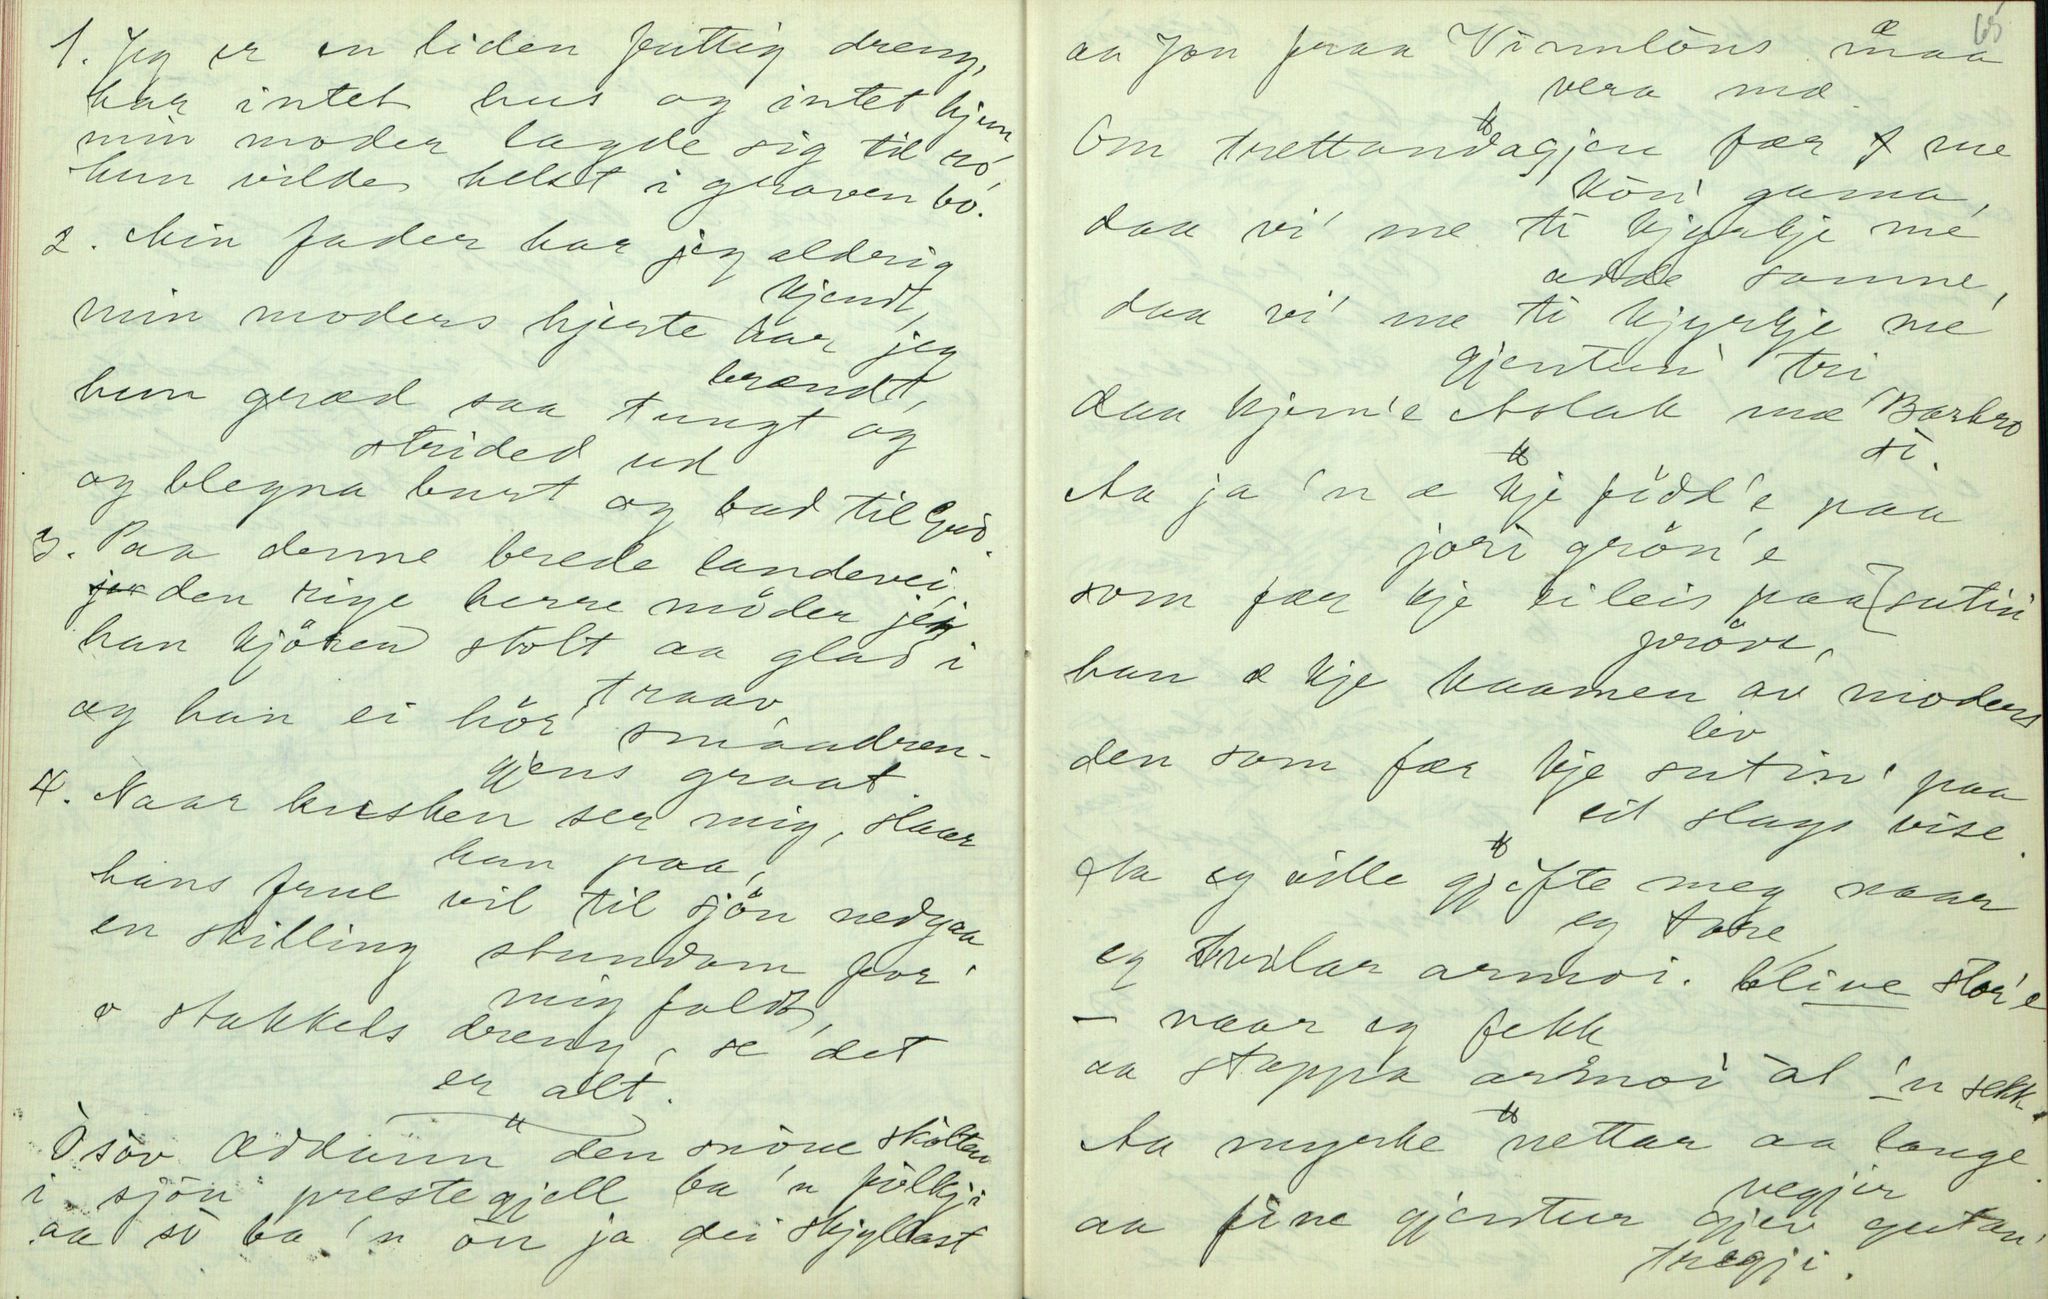 1. Jeg er en liden fattig dreng,
har intet hus og intet hjem
min moder lagde sig til ró,
hun vilde helst i graven bo.
2. Min fader har jeg aldrig
kjendt,
min moders hjerte har jeg
brændt,
hun græd saa tungt og
strided ud
og blegna burt og bad til Gud.
3. Paa denne brede landevei,
den rige herre möder jeg
han kjören stolt aa glad i
traav
og han ei hör smaadren-
gjens graat.
4. Naar kusken ser mig, slaar
han paa,
hans frue vil til sjön nedgaa
en skilling stundom for
mig faldt,
o stakkels dreng, se det
er alt.
den snöue skölten
i sjön prestegjell ba 'n fölkji
aa sò ba 'n òn ja dei skyldast
65
aa Jon fraa Vinnlöns maa
vera mæ.
Om trettandagjen fær me
hön' gama,
daa vi' me ti kjyrkje me
adde samne,
daa vi' me ti kjyrkje me
gjentun' tri
daa kjem'e Aslak mæ Barbro
si.
Aa ja 'n æ kje född'e paa
jori grön'e
som fær kje eileis paa sutin'
pröve,
han æ kje kaamen av moders
liv
den som fær kje sutin' paa
eit slags vise.
Aa eg ville gjifte meg naar
eg tore,
eg tvilar armoi. blive stor'e
– naar eg fekk
aa stappa armoi al 'n sekk.
Aa myrke nettar aa lange
vegjir
aa fine gjentur gjev gutan'
tregji.